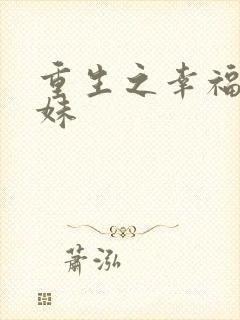 重生之幸福
妹
萧泓